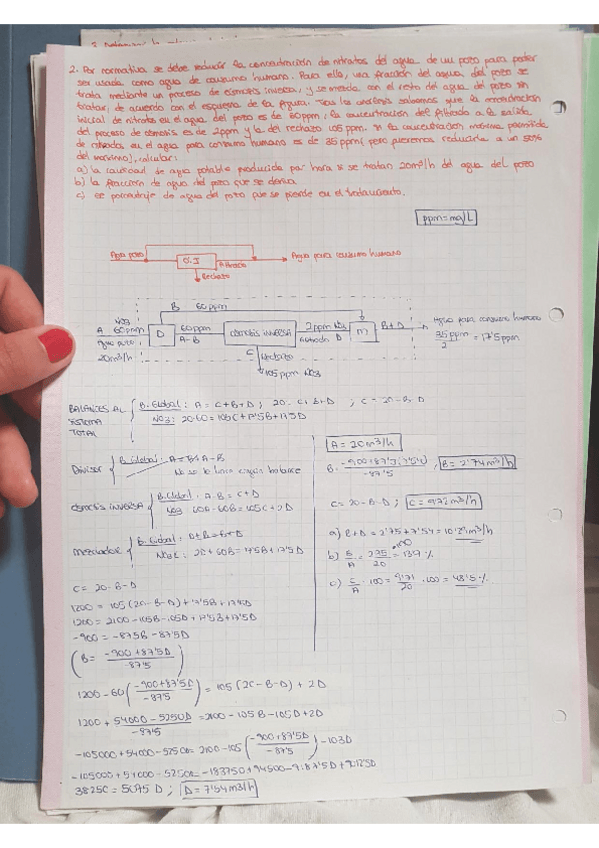 2. Por normativa se debe reducir la concentración de nitratos del agua de un pozo para poder
ser usada como agua de consumo humano. Para ello, una fracción del agua del pozo se
trata mediante un proceso de ósmosis inversa, y se mezcla con el resto del agua del pozo sin
tratar, de acuerdo con el esquema de la figura. Tras los análisis sabemos que la concentración
inicial de nitratos en el agua del pozo es de 60ppm, la concentración del filtrado a la salida
del proceso de osmosis es de 2ppm y la del rechazo 105 ppm. Si la concentración máxima permitida
de nitratos en el agua para consumo humano es de 35ppm (pero queremos reducirla a un 50%
del máximo), calcular:
a) la cantidad de agua potable producida por hora si se tratan 20m³/h del agua del pozo
b) la fracción de agua del pozo que se deriva
c) el porcentaje de agua del pozo que se pierde en el tratamiento.
ppm = mg/L
Agua pozo
O.I
Filtrado
Agua para consumo humano
Rechazo
B 60ppm
A NO3 60ppm
Agua pozo
20m³/h
D
60ppm
A-B
osmosis inversa
2ppm NO3
D
M
B+D
Agua para consumo humano
35ppm/2 = 17'5ppm
C Rechazo
105 ppm NO3
BALANCES AL SISTEMA TOTAL
B. Global: A = C+B+D ; 20 = C+B+D ; C = 20-B-D
NO3: 20·60 = 105C + 17'5B + 17'5D
Divisor
B. Global: A = B+A-B
No se le hace ningún balance
osmosis inversa
B. Global: A-B = C+D
mezclador
B. Global: D+B = B+D
NO3: 2D + 60B = 17'5B + 17'5D
C = 20-B-D
1200 = 105(20-B-D) + 17'5B + 17'5D
1200 = 2100 - 105B - 105D + 17'5B + 17'5D
-900 = -87'5B - 87'5D
(B = -900+87'5D / -87'5)
1200 - 60(-900+87'5D / -87'5) = 105(20-B-D) + 2D
1200 + 54000 - 5250D / -87'5 = 2100 - 105B - 105D + 2D
D = 7'54m³/h
A = 20m³/h
B = -900+87'5(7'54) / -87'5 ; B = 2'74m³/h
C = 20-B-D ; C = 9'71m³/h
b) B/A = 2'75/20 ·100 = 13'7 %
c) C/A ·100 = 9'71/20 ·100 = 48'5 %